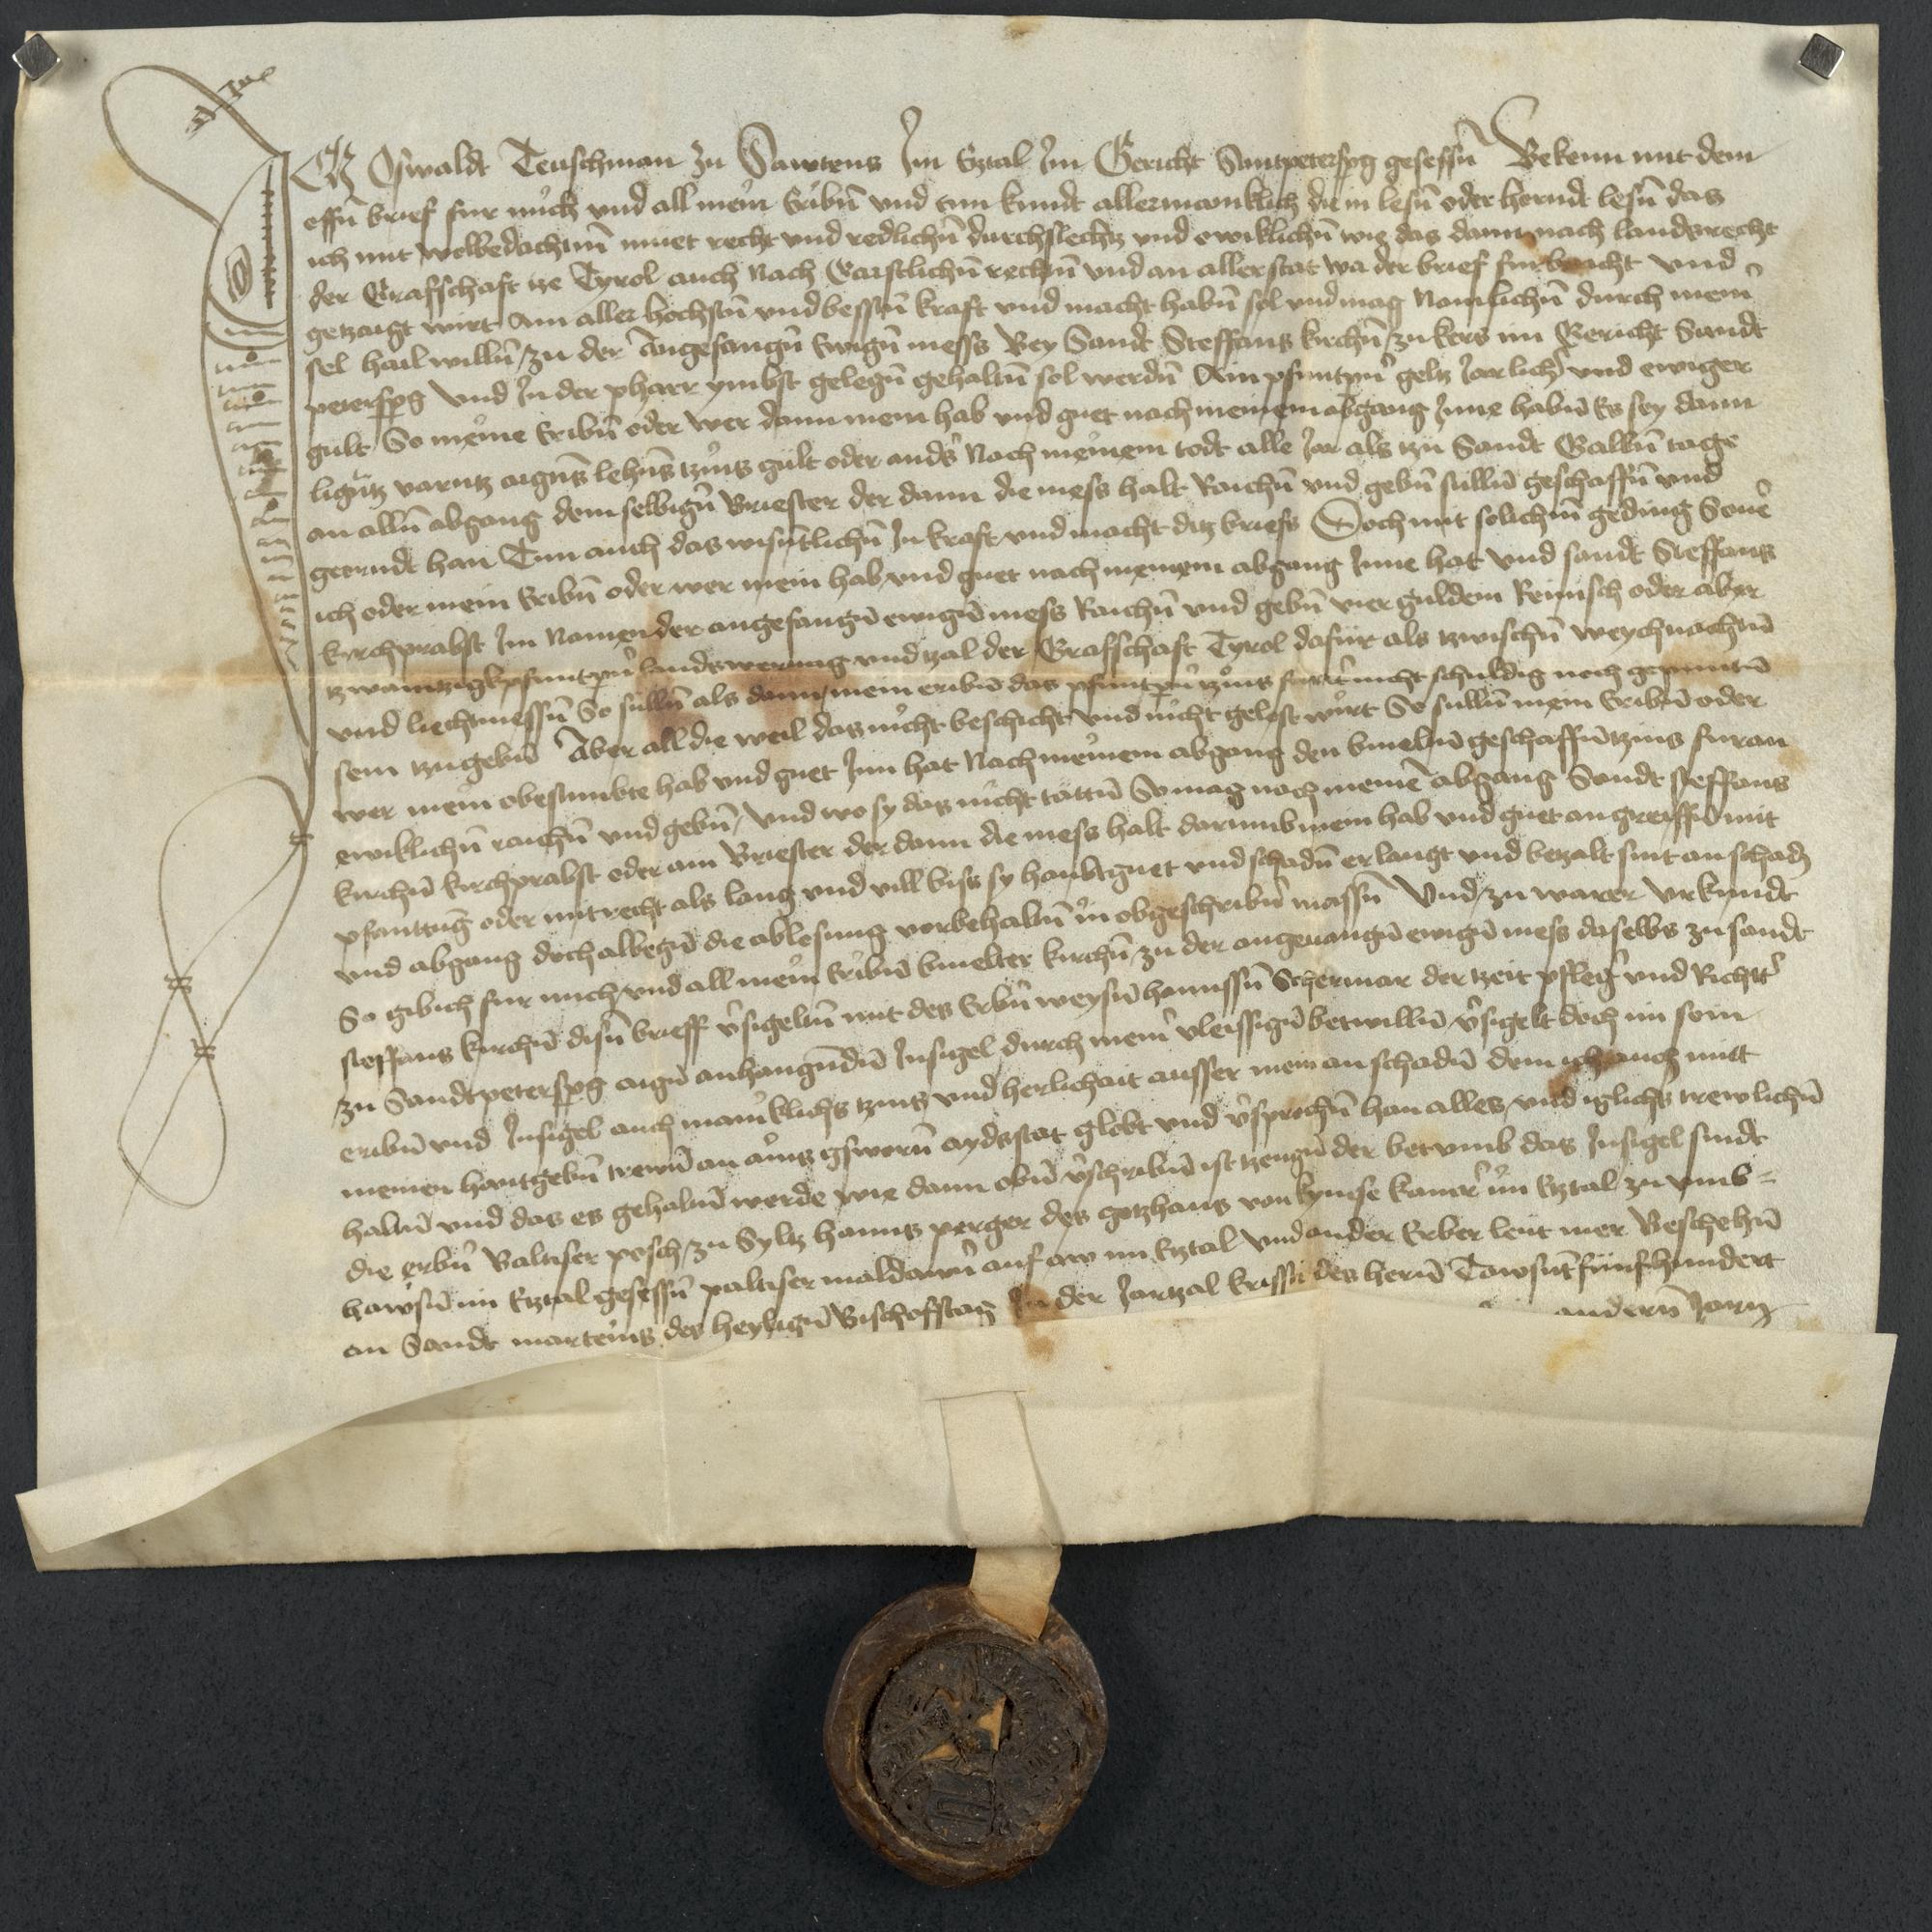 Ich Oswaldt Teuschman zu Sawtens Im Eztal Im Gericht Santpetersperg gesessn̄ Bekenn mit dem
offn̄ brief fur mich vnd all mein Eribn̄ vnd tun kundt allermeniklich die in lesn̄ oder hörndt lesn̄ das
ich mit wolbedachtm̄ muet recht vnd redlichn̄ durchslechtz vnd ewiklichn̄ wie das dann nach landsrecht
der Grafschaft ze Tyrol auch nach Gaistlichn̄ rechtn̄ vnd an aller stat wa der brief furbracht vnd
getzaigt wirt Am aller hochstn̄ vnd bestn̄ kraft vnd macht habn̄ sol vnd mag Namlichn̄ durch meiner
sel hail willn̄ zu der Angefangn̄ Ewign̄ mess Bey Sandt Steffans kirchn̄ zu kers im Gericht Sandt
petersperg Vnd In der pharr ymbst gelegn̄ gehaltn̄ sol werdn̄ Ain pfuntpn̄ geltz Jarlicher vnd ewiger
gult So meine Eribn̄ oder wer dann mein hab vnd guet nach meinem abgang Inne habn̄ Es sey dann
ligntz varntz aigns lehns tzins gult oder anders Nach meinem todt alle Jar als tzu Sandt Gallen tage
an alln̄ abgang demselbign̄ Briester der dann die mess halt Raichn̄ vnd gebn̄ sulln̄ geschaffn̄ vnd
geornndt han Tun auch das wisntlichn̄ In kraft vnd macht ditz briefs Doch mit solichm̄ geding Souer
ich oder mein Eribn̄ oder wer mein hab vnd guet nach meinem abgang Inne hat vnd sandt Steffans
kirchprabst Im Namen der angefangn̄ ewign̄ mess Raichn̄ vnd gebn̄ vier guldein Reinisch oder aber
tzwaintzigk pfuntpn̄ landswerung vnd tzal der Grafschaft Tyrol dafür als tzwischn̄ weychnachtn̄
vnd liechtmessn̄ So sulln̄ als dann mein eribn̄ das pfuntpn̄ tzins furter nicht schuldig noch gepuntn̄
sein tzugebn̄ Aber all die weil das nicht beschicht vnd nicht gelost wirt So sulln̄ mein Eribn̄ oder
wer mein obestimbte hab vnd guet Inn hat Nach meinem abgang den bmeltn̄ geschafftn̄ tzins furan
ewiklichn̄ raichn̄ vnd gebn̄ / Vnd wo sy das nicht tättn̄ So mag nach meinē abgang Sandt steffans
kirchn̄ kirchprabst oder ain Briester der dann die mess halt darumb mein hab vnd guet angreiffn̄ mit
pfanttung oder mit recht als lang vnd vill biss sy haubtguet vnd schadn̄ erlangt vnd betzalt sint an schadn̄
vnd abgang doch albegn̄ die ablosung vorbehaltn̄ in obgeschribn̄ massn̄ Vnd zu warer Vrkundt
So gib ich fur mich vnd all mein Eribn̄ bmelter kirchn̄ zu der angeuangn̄ ewign̄ mess daselbs zu sandt
steffans kirchn̄ disn̄ brieff v̄sigeltn̄ mit des Erbn̄ weysn̄ hannssn̄ Schermar der tzeit pfleger vnd Richter
zu Sandtpetersperg aign̄ anhangundn̄ Insigel durch meiner vleissign̄ betwilln̄ v̄sigelt doch im sein
eribn̄ vnd Insigel auch maniklichs tzins vnd herlichait ausser mein an schadn̄ dem ich auch mitt
meinen hantgebn̄ trewn̄ an ains gsworn̄ aydsstat globt vnd v̄sprochn̄ han alles vnd iglichs trewlichn̄
haltn̄ vnd das es gehaltn̄ werde wie dann obn̄ v̄schribn̄ ist tzeugn̄ der bet vmb das Insigel sindt
die erbn̄ Baltiser posch zu Syltz hanns perger des gotzhaus von kyemse kamrer im Eztal zu vmb=
hawsn̄ im Eztal gesessn̄ paltiser maldoner auf aw im Eztal Vnd ander Erber leut mer Beschehn̄
an Sandt marteins des heylign̄ Bischoffstag In der Jartzal kristi des herrn̄ Tawsnt funfhundert
andern̄ Jarn